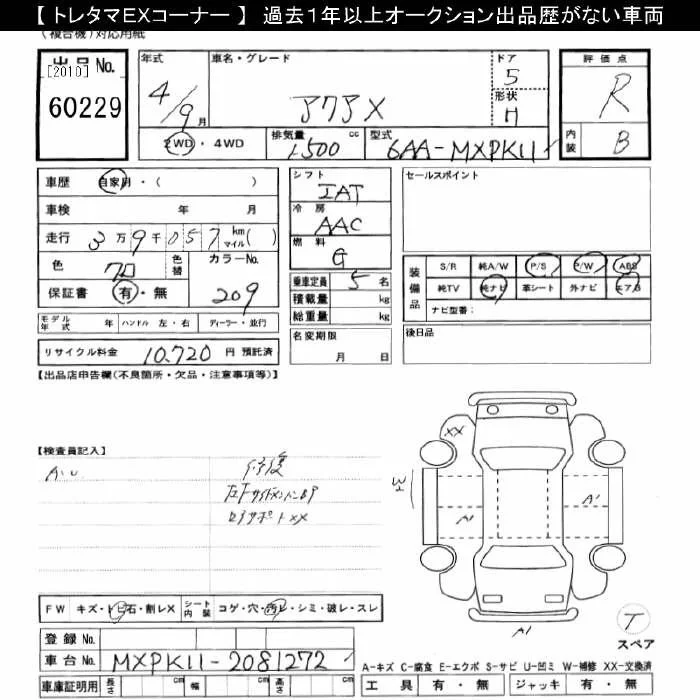 【トレタマEXコーナー】 過去1年以上オークション出品歴がない車両
(複合機)対応用紙
出品No.
[2010]
60229
年式
4/9月
車名・グレード
アクア X
ドア
5
形状
H
評価点
R
内装
B
2WD・4WD
排気量
1500 cc
型式
6AA-MXPK11
車歴 自家用・( )
車検 年 月
走行 3万9千057 km マイル( )
色 クロ 色替 カラーNo.
保証書 有・無 209
シフト
IAT
冷房
AAC
燃料
G
乗車定員 5 名
積載量 kg
総重量 kg
名変期限
月 日
セールスポイント
装備品
S/R 純A/W P/S P/W ABS
純TV 純ナビ 革シート 外ナビ エアB
ナビ型番:
後日品
モデル年式 年 ハンドル 左・右 ディーラー・並行
リサイクル料金 10,720 円 預託済
【出品店申告欄(不良箇所・欠品・注意事項等)】
【検査員記入】
A.U 修復
左Fサイドメンバー
コアサポートXX
XX
A1
A1
A1
T
スペア
FW キズ・トビ石・割レX シート内装 コゲ・穴・汚レ・シミ・破レ・スレ
登録No.
車台No. MXPK11-2081272
車庫証明用 長さ cm 幅 cm 高さ cm
A-キズ C-腐食 E-エクボ S-サビ U-凹ミ W-補修 XX-交換済
工具 有・無 ジャッキ 有・無